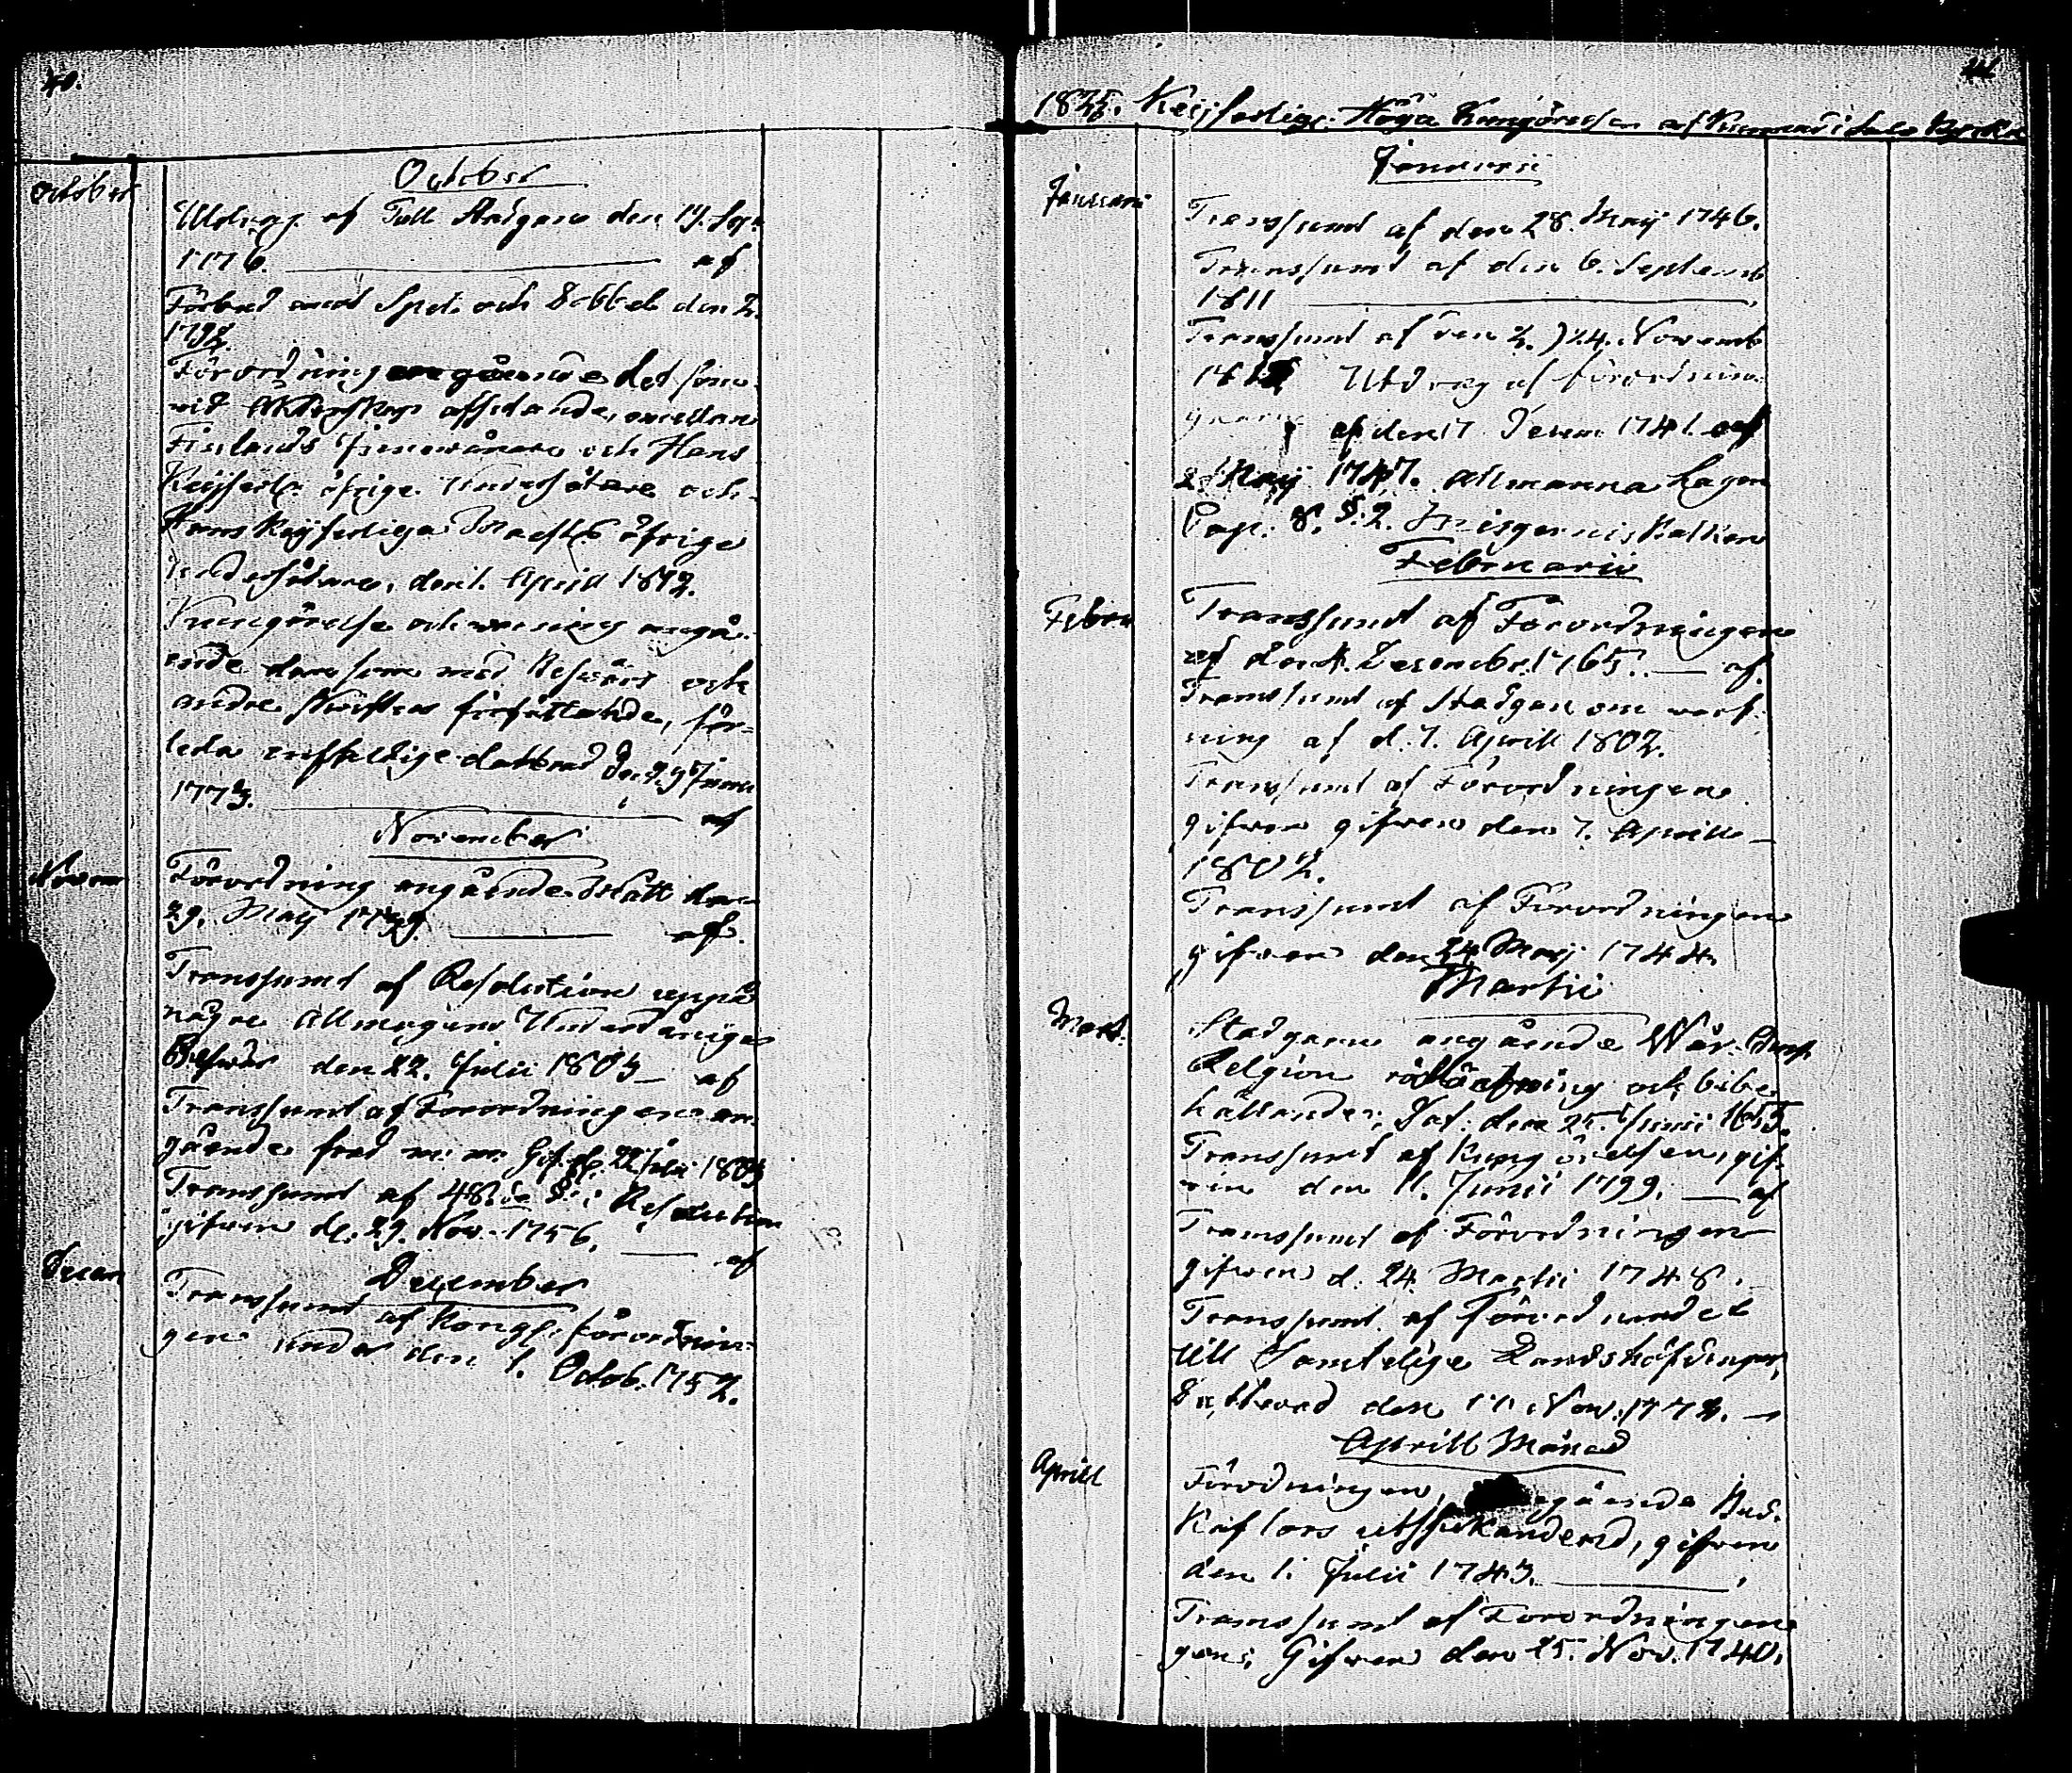 40.
October
October
Utdrag af Tull Stadgan den 19. Sep.
1776. af
Förbud mot Spel och Dobbel den 2.
1792.
Förordning angående det som
vid äktenskaps afslutande, mellan
Finlands Innevånare och Hans
Keijserl. öfrige Undersåtare och
Hans Keijserliga Maest:s öfrige
undersåtare, den 1. April 1812.
Kungörelse och varning angå-
ende dem som med Besvärs och
andre skrifters författande, för-
leda enfaldige datterad den 29 Janu
1773. af
November
Novem
Förordning angående Malt den
29. Maij 1739. af.
Transsumt af Resolution uppå
någre Allmogens Underdånige
Besvär den 22. Julii 1803 af
Transsumt af Förordningen an-
gående fred m. m. Gif. d. 22 Julii 1803
Transsumt af 48:de §: i Resolution
gifven d. 29. Nov. 1756. af
December
Decem
Transsumt af Kongl. förordnin-
gen under den 1. Octob. 1752.
41
1825. Keijserlige Höga Kungörelser af Kunnad i Kyrka
Januarii
Januarii
Transsumt af den 28. Maij 1746.
Transsumt af den 6. Septemb
1811
Transsumt af den 2. ) 24. Novemb
Utdrag af förordnin-
af den 17 Decem 1741. af
2 Maij 1747. Allmänna Lagen
Cap. 8. §. 2. Missgernis Balken
Februarii
Febru
Transsumt af Förordningen
af den 4. Decembr. 1765. af.
Transsumt af Stadgan om verf-
ning af d. 7. Aprill 1802.
Transsumt af Förordningen
gifven gifven den 7. Aprill
1802.
Transsumt af Förordningen
gifven den 24 Maij 1744.
Martii
Mart.
Stadgan angående Vår
Religion öfning och bibe-
hållande, Dat: den 25. Junii 1655.
Transsumt af Kungörelsen, gif-
ven den 11. Junii 1799. af
Transsumt af Förordningen
gifven d. 24 Martii 1748.
Transsumt af Förbundet
till Samtelige Landshöfdingar,
Datterad den 17 Nov. 1772.
Aprill Månad
Aprill
Förodningen, angående Bud-
Kaflars utskickande, gifven
den 1. Julii 1743.
Transsumt af Förordningen
gens; Gifven den 25. Nov. 1740.